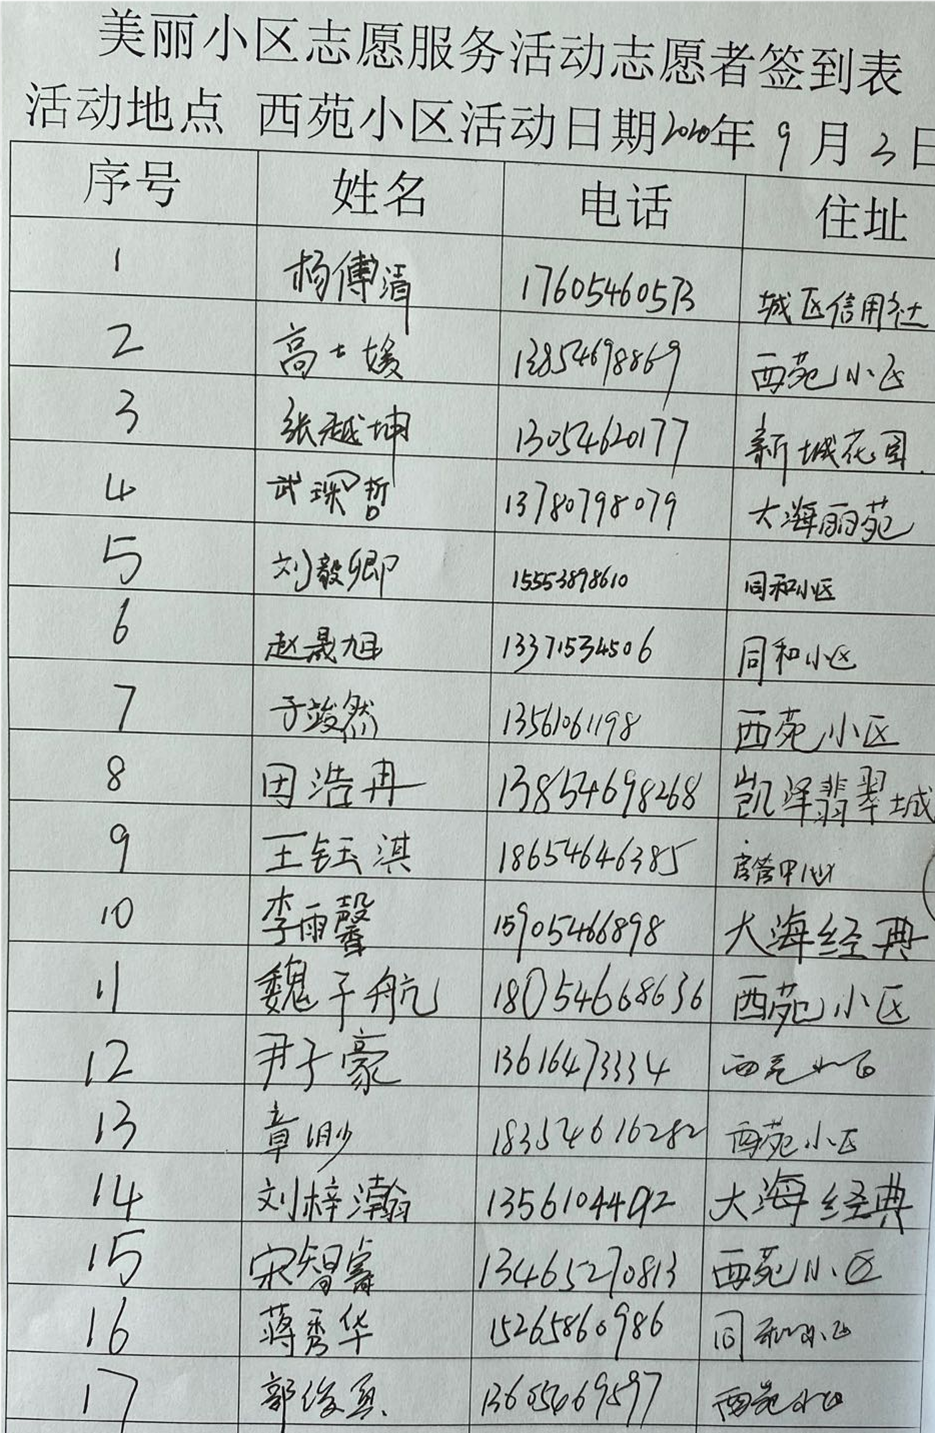 美丽小区志愿服务活动志愿者签到表
活动地点 西苑小区活动日期2020年9月3日
序号 姓名 电话 住址
1 杨傅清 17605460573 城区信用社
2 高士媛 13854698869 西苑小区
3 张越坤 13054620177 新城花园
4 武琛哲 13780798079 大海丽苑
5 刘毅卿 15553898610 同和小区
6 赵晟旭 13371534506 同和小区
7 于竣然 13561061198 西苑小区
8 田浩冉 13854698268 凯泽翡翠城
9 王钰淇 18654646385 房管中心
10 李雨馨 15905466898 大海经典
11 魏子航 18054668636 西苑小区
12 尹子豪 13616473334 西苑小区
13 章 18354616282 西苑小区
14 刘梓瀚 13561044192 大海经典
15 宋智睿 13465270813 西苑小区
16 蒋秀华 15265860986 同和小区
17 郭俊 13605469597 西苑小区